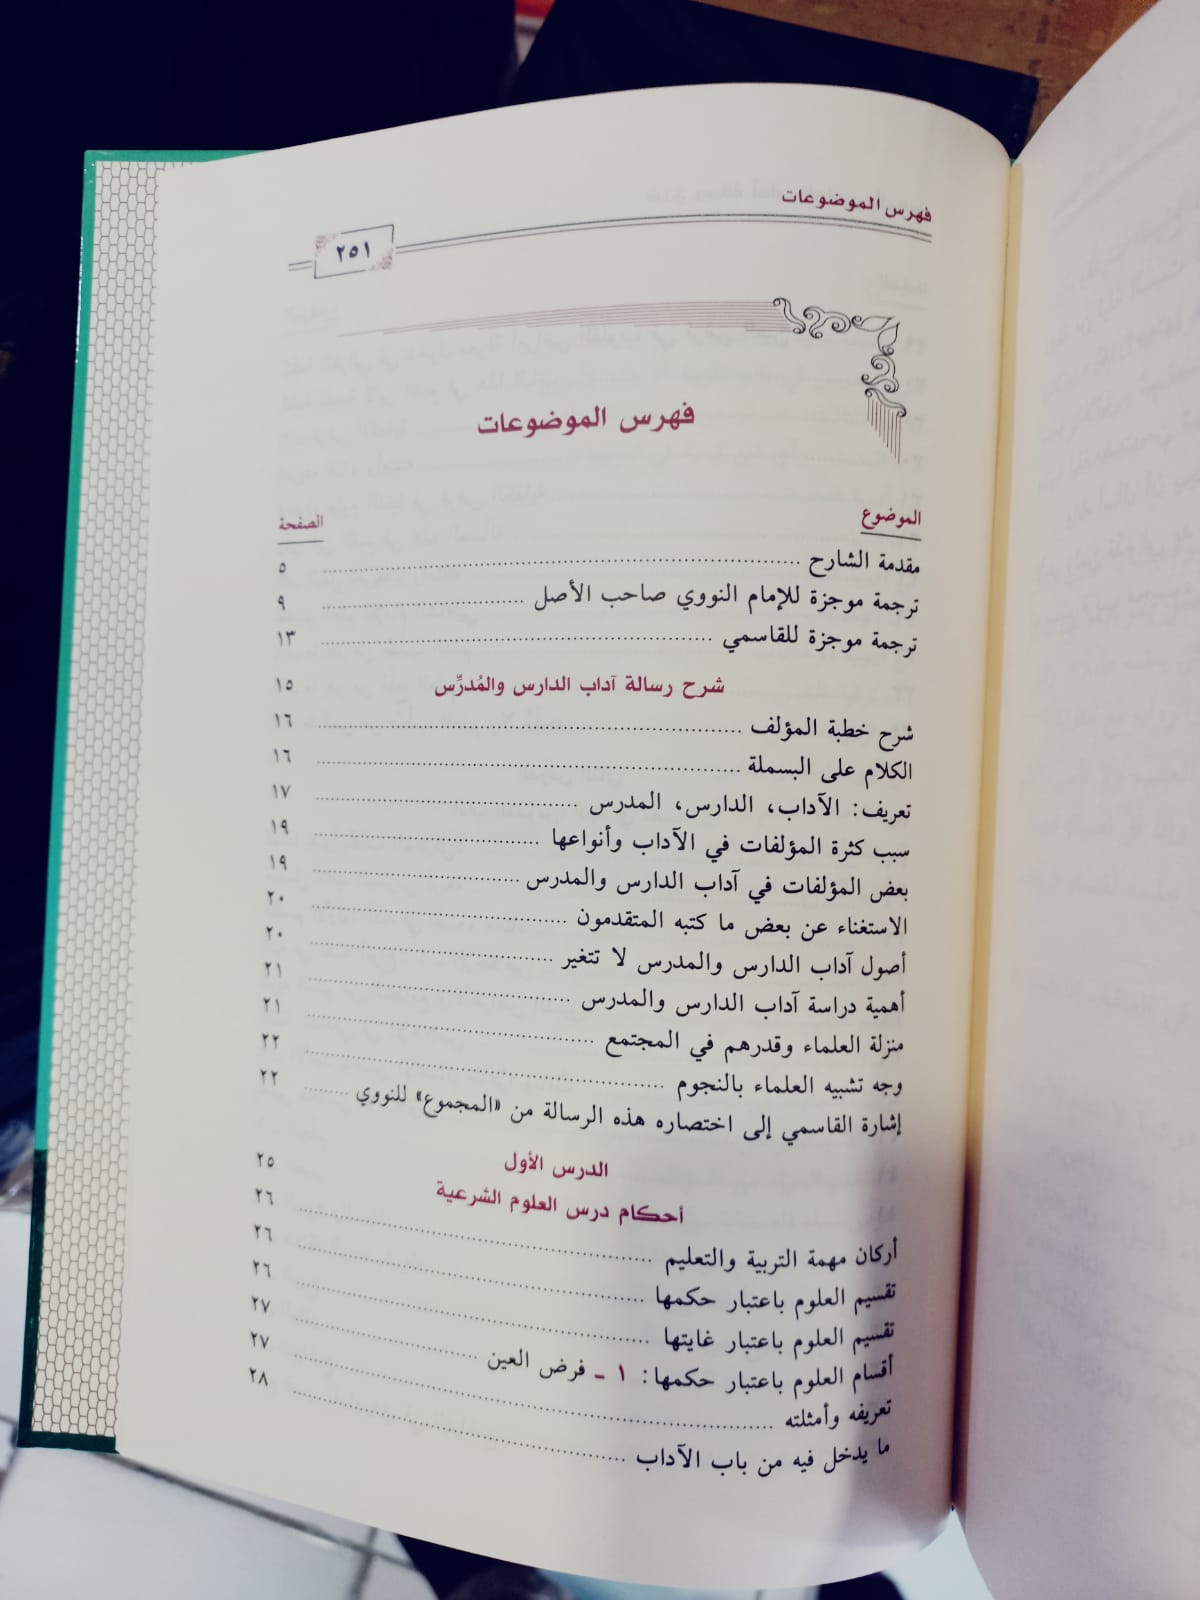 فهرس الموضوعات
٢٥١
فهرس الموضوعات
الموضوع الصفحة
مقدمة الشارح ٥
ترجمة موجزة للإمام النووي صاحب الأصل ٩
ترجمة موجزة للقاسمي ١٣
شرح رسالة آداب الدارس والمُدرِّس ١٥
شرح خطبة المؤلف ١٦
الكلام على البسملة ١٦
تعريف: الآداب، الدارس، المدرس ١٧
سبب كثرة المؤلفات في الآداب وأنواعها ١٩
بعض المؤلفات في آداب الدارس والمدرس ١٩
الاستغناء عن بعض ما كتبه المتقدمون ٢٠
أصول آداب الدارس والمدرس لا تتغير ٢٠
أهمية دراسة آداب الدارس والمدرس ٢١
منزلة العلماء وقدرهم في المجتمع ٢١
وجه تشبيه العلماء بالنجوم ٢٢
إشارة القاسمي إلى اختصاره هذه الرسالة من «المجموع» للنووي ٢٢
الدرس الأول
أحكام درس العلوم الشرعية ٢٥
أركان مهمة التربية والتعليم ٢٦
تقسيم العلوم باعتبار حكمها ٢٦
تقسيم العلوم باعتبار غايتها ٢٦
أقسام العلوم باعتبار حكمها: ١ ـ فرض العين ٢٧
تعريفه وأمثلته ٢٧
ما يدخل فيه من باب الآداب ٢٨